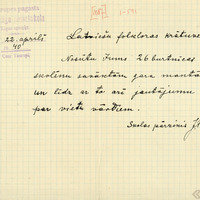 [185]
22. aprīlī
40
Latviešu folkloras krātuvei
Nosūtu Jums 26 burtnīcas
skolēnu savāktām gara mantām
un līdz ar to arī jautājumu
par vietu vārdiem.
Skolas pārzinis